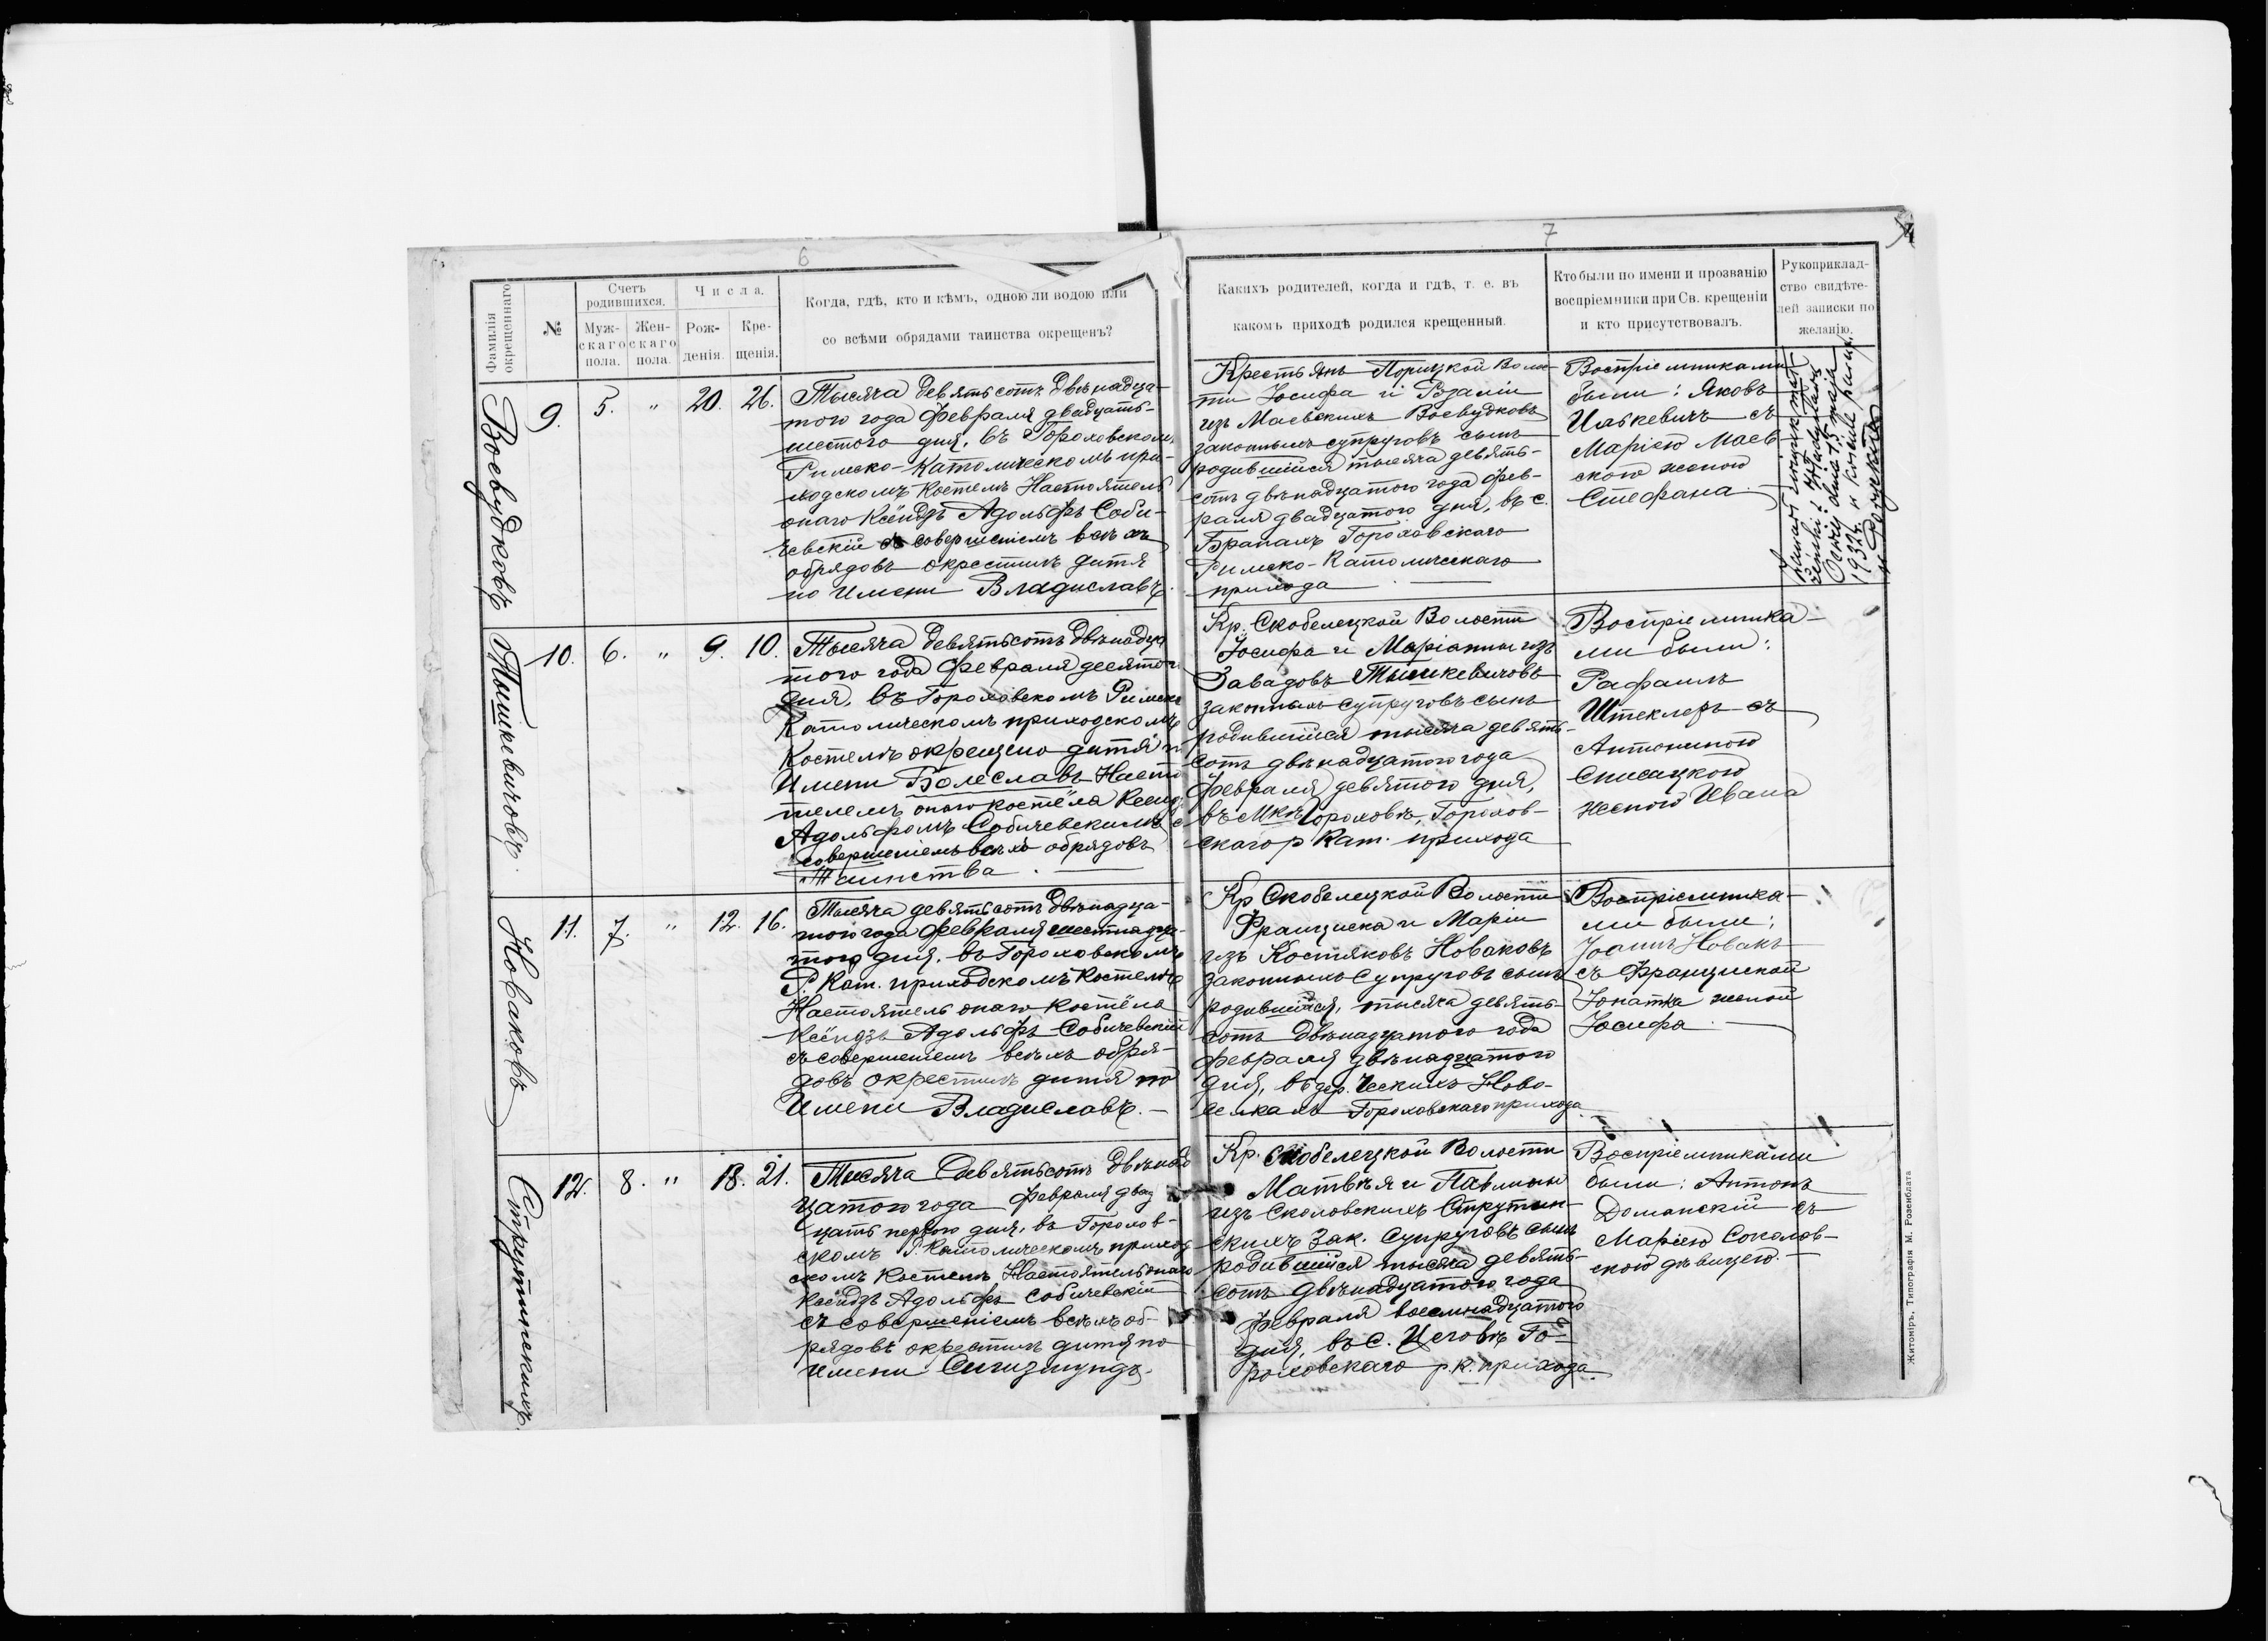 6
7
Фамилія окрещеннаго
№
Счетъ родившихся.
Мужскаго пола.
Женскаго пола.
Числа.
Рожденія.
Крещенія.
Когда, гдѣ, кто и кѣмъ, одною ли водою или
со всѣми обрядами таинства окрещенъ?
Какихъ родителей, когда и гдѣ, т. е. въ
какомъ приходѣ родился крещенный.
Кто были по имени и прозванію
воспріемники при Св. крещеніи
и кто присутствовалъ.
Рукоприклад-
ство свидѣте-
лей записки по
желанію.
Воевудковъ
9. 5. " 20. 26.
Тысяча девятьсотъ двѣнадца-
того года Февраля двадцать-
шестого дня, въ Гороховскомъ
Римско-Католическомъ при-
ходскомъ Костелѣ Настоятель
онаго Ксёндзъ Адольфъ Соби-
чевскій съ совершеніемъ всѣхъ
обрядовъ окрестилъ дитя
по имени Владиславъ.
Крестьянъ Порицкой Воло-
сти Іосифа и Розаліи
изъ Маевскихъ Воевудковъ
законныхъ супруговъ сынъ
родившійся тысяча девять-
сотъ двѣнадцатого года Фев-
раля двадцатого дня, въ с.
Бранахъ Гороховскаго
Римско-Католическаго
прихода
Воспріемниками
были: Яковъ
Илькевичъ съ
Маріею Маев-
скою женою
Стефана
1934 r. w kościele
Пышкевичовъ.
10. 6. " 9. 10.
Тысяча девятьсотъ двѣнадца
того года Февраля десятого
дня, въ Гороховскомъ Римско
Католическомъ приходскомъ
Костелѣ окрещено дитя по
имени Болеславъ Насто
телемъ онаго костёла Ксенд.
Адольфомъ Собичевскимъ с
совершеніемъ всѣхъ обрядовъ
Таинства.
Кр. Скобелецкой Волости
Іосифа и Маріанны изъ
Завадовъ Тышкевичовъ
законныхъ супруговъ сынъ
родившійся тысяча девять-
сотъ двѣнадцатого года
Февраля девятого дня,
въ Мкѣ Гороховѣ, Горохов-
скаго р Кат. прихода
Воспріемника-
ми были:
Рафаилъ
Штеклеръ съ
Антониною
женою Ивана
Новаковъ
11. 7. " 12. 16.
Тысяча девятьсотъ двѣнадца-
того года Февраля шестнадца-
того дня, въ Гороховскомъ
Р. Кат. приходскомъ Костелѣ
Настоятель онаго костёла
Ксёндзъ Адольфъ Собичевскій
съ совершеніемъ всѣхъ обря-
довъ окрестилъ дитя по
имени Владиславъ.
Кр Скобелецкой Волости
Франциска и Маріи
изъ Костяковъ Новаковъ
законныхъ супруговъ сынъ
родившійся, тысяча девять-
сотъ двѣнадцатого года
февраля двѣнадцатого
дня, въ дер. Ческихъ Ново-
селкахъ Гороховскаго прихода
Воспріемника-
ми были:
Іоаннъ Новакъ
съ Францишкой
Іонатка женой
Іосифа.
Струтинскихъ
12. 8. " 18. 21.
Тысяча девятьсотъ двѣнад
цатого года Февраля двад
цать первого дня, въ Горохов-
скомъ Р. Католическомъ приход
скомъ Костелѣ Настоятель онаго
Ксёндзъ Адольфъ Собичевскій
съ совершеніемъ всѣхъ об-
рядовъ окрестилъ дитя по
имени Сигизмундъ.
Кр. Скобелецкой Волости
Матвѣя и Павлины
изъ Сколовскихъ Струтин-
скихъ Зак. Супруговъ сынъ
родившійся тысяча девять-
сотъ двѣнадцатого года
Февраля восемнадцатого
дня, въ С. Цеговѣ Го-
роховскаго р.к. прихода.
Воспріемниками
были: Антонъ
Доманскій съ
Маріею Соколов-
скою дѣвицею.
Житоміръ, Типографія М. Розенблата